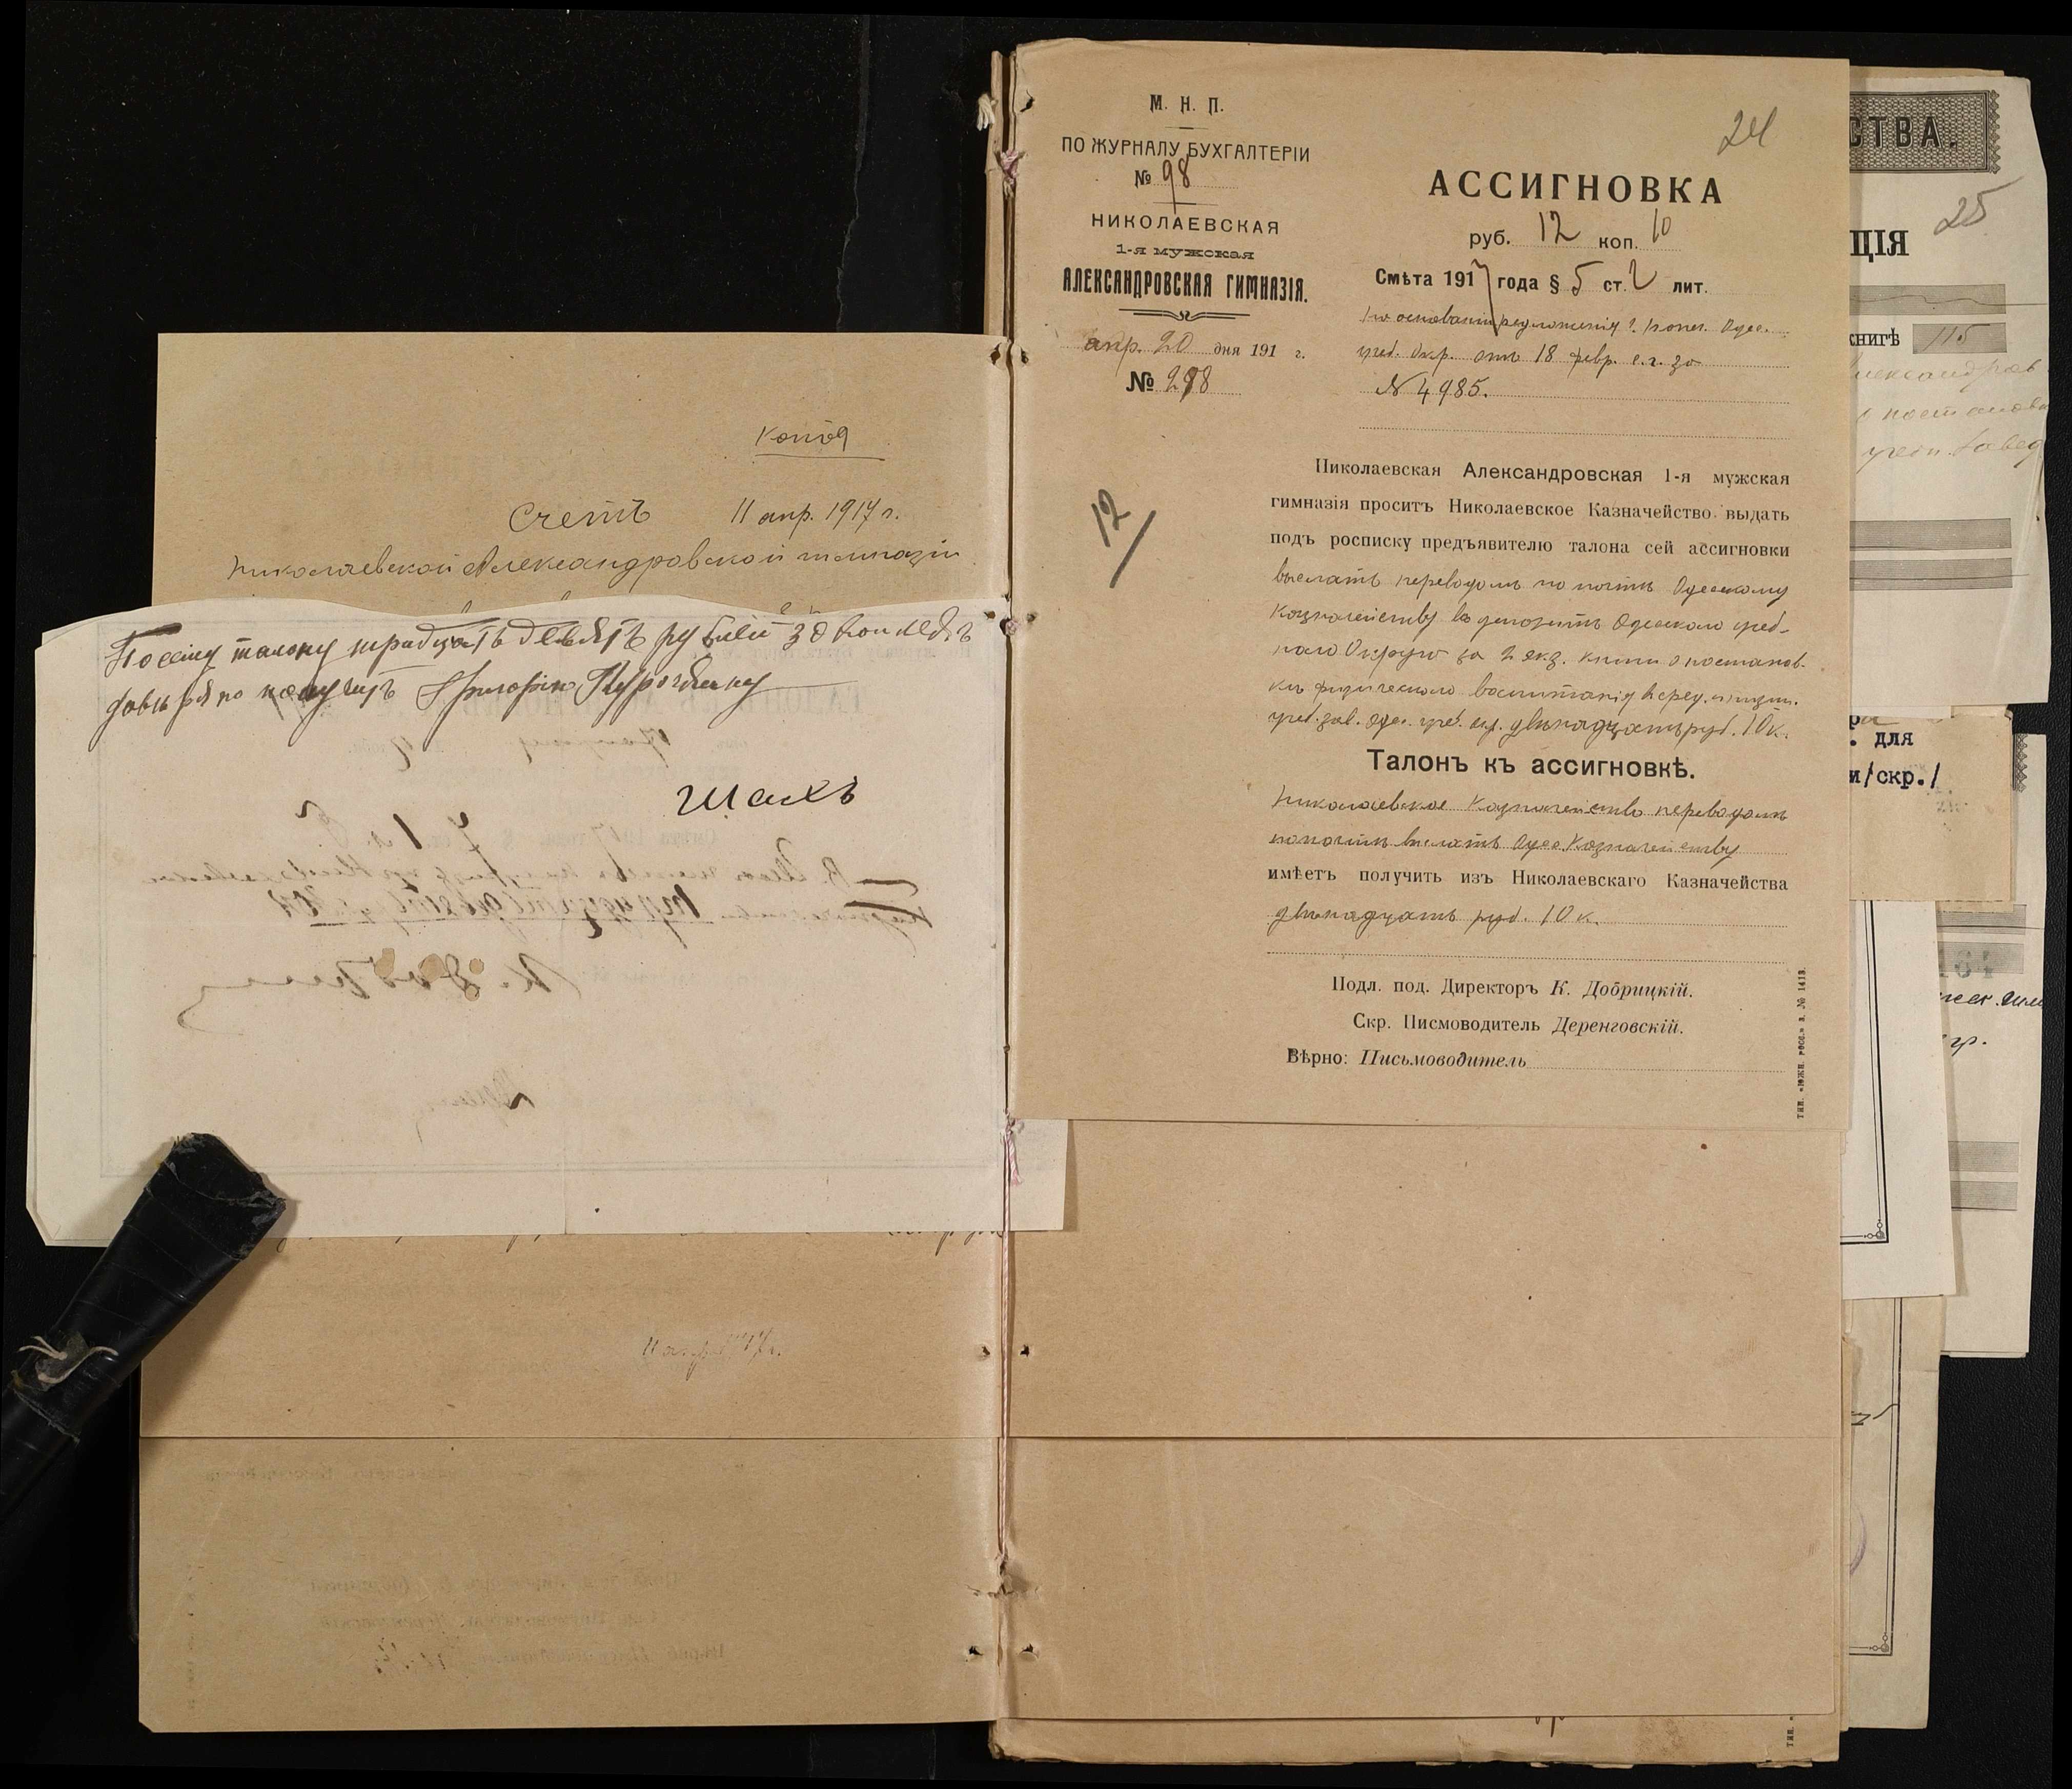 копія
Счетъ 11 апр. 1917 г.
Николаевской Александровской гимназіи
По сему талону тридцать девять рублей 30 копѣекъ
довѣряю получить Григорію Курочкину
Шахъ
11 апр. 1917 г.
М. Н. П.
ПО ЖУРНАЛУ БУХГАЛТЕРІИ
№ 98
НИКОЛАЕВСКАЯ
1-я мужская
АЛЕКСАНДРОВСКАЯ ГИМНАЗІЯ.
апр. 20 дня 191 г.
№ 298
12/
24
АССИГНОВКА
руб. 12 коп. 10
Смѣта 1917 года § 5 ст. 2 лит.
На основаніи предложенія г. попеч. Одес.
учеб. Окр. отъ 18 февр. с.г. за
№ 4985.
Николаевская Александровская 1-я мужская
гимназія проситъ Николаевское Казначейство выдать
подъ росписку предъявителю талона сей ассигновки
выслать переводомъ по почтѣ Одесскому
Казначейству въ депозитъ Одесскаго учеб-
наго Округа за 2 экз. книги о постанов-
кѣ физическаго воспитанія въ сред. и низш.
учеб. зав. Одес. учеб. окр. двѣнадцать руб. 10 к.
Талонъ къ ассигновкѣ.
Николаевское Казначейство переводомъ
по почтѣ выслать Одес. Казначейству
имѣетъ получить изъ Николаевскаго Казначейства
двѣнадцать руб. 10 к.
Подл. под. Директоръ К. Добрицкій.
Скр. Писмоводитель Деренговскій.
Вѣрно: Письмоводитель
тип. «Южн. росс.» з. № 1413.
СТВА.
25
ЦІЯ
книгѣ 115
Александров
о постановк
учебн. завед
. для
и/скр./
164
гр.